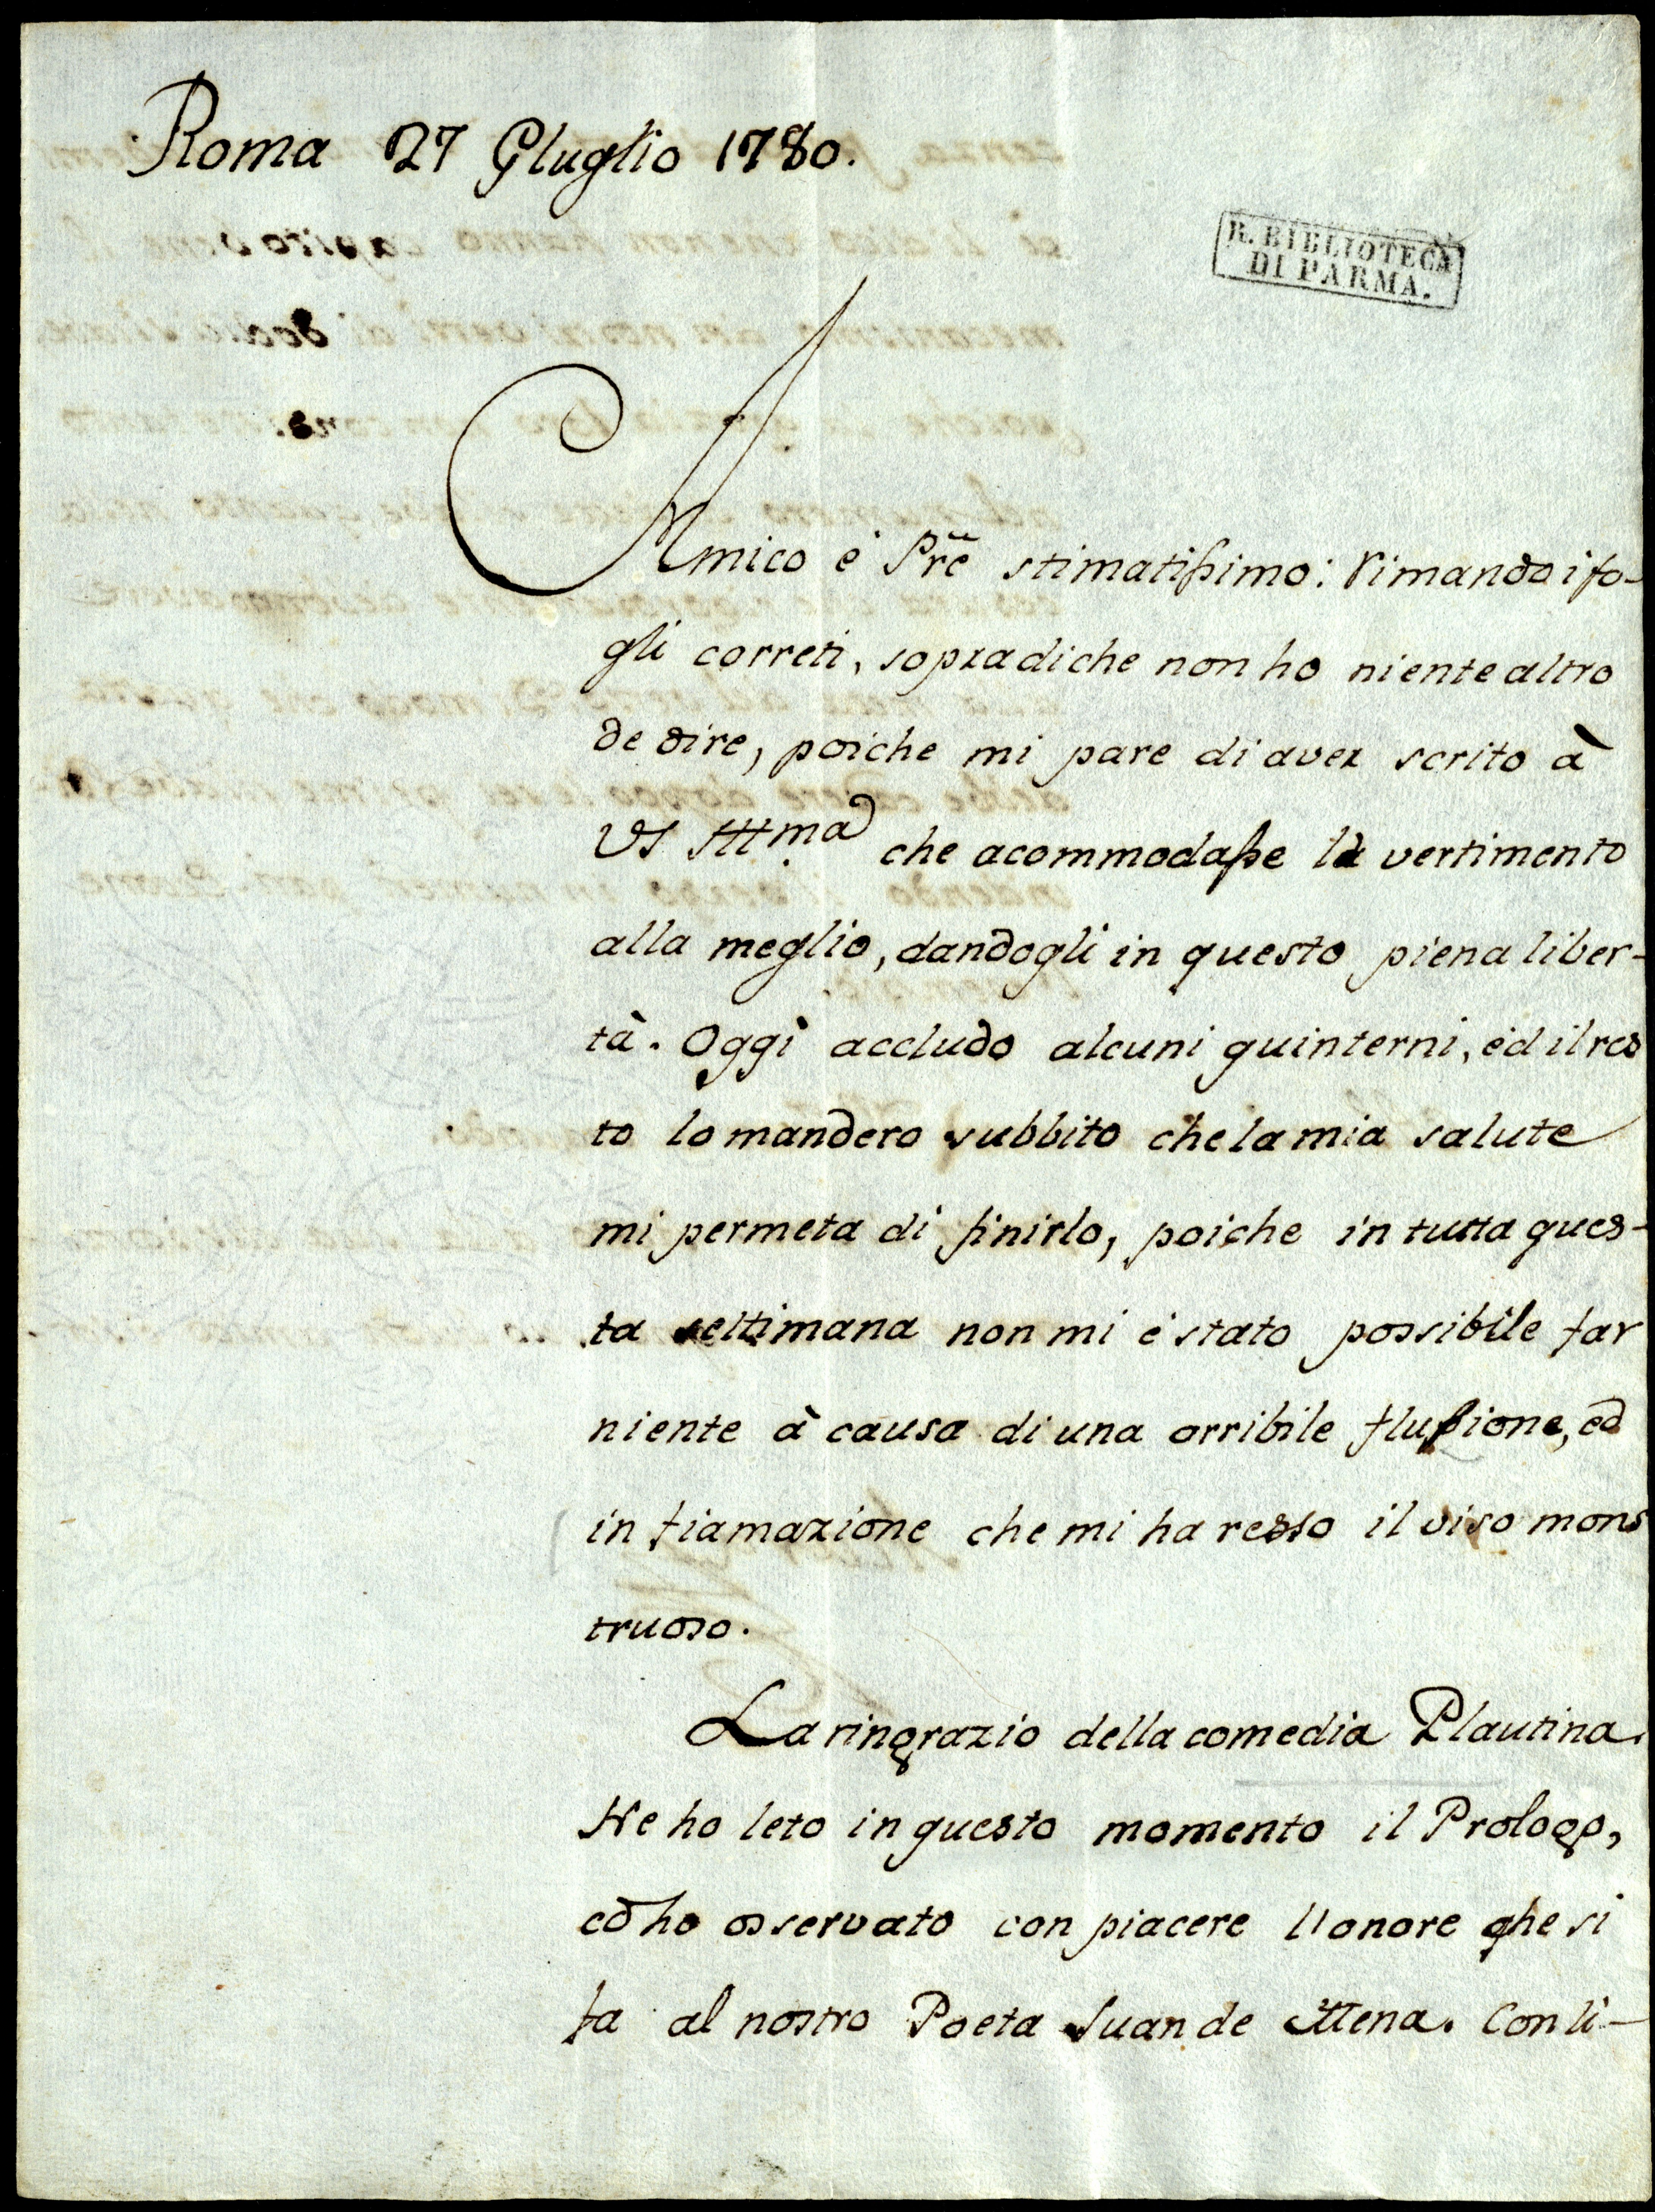 Roma 27 Gluglio 1780.
R. BIBLIOTECA
DI PARMA.
Amico è Prē stimatissimo: Rimando i fo-
gli correti, sopradiche non ho niente altro
de dire, poiche mi pare di aver scrito à
VS Illma che acommodasse la vertimento
alla meglio, dandogli in questo piena liber-
tà. Oggi accludo alcuni quinterni, ed il res
to lo mandero subbito che la mia salute
mi permeta di finirlo, poiche in tutta ques-
ta settimana non mi è stato possibile far
niente à causa di una orribile flussione, ed
infiamazione che mi ha resso il viso mons
truoso.
La ringrazio della comedia Plautina.
Ne ho leto in questo momento il Prologo,
ed ho osservato con piacere l'onore che si
fa al nostro Poeta Juan de Mena. Con li-